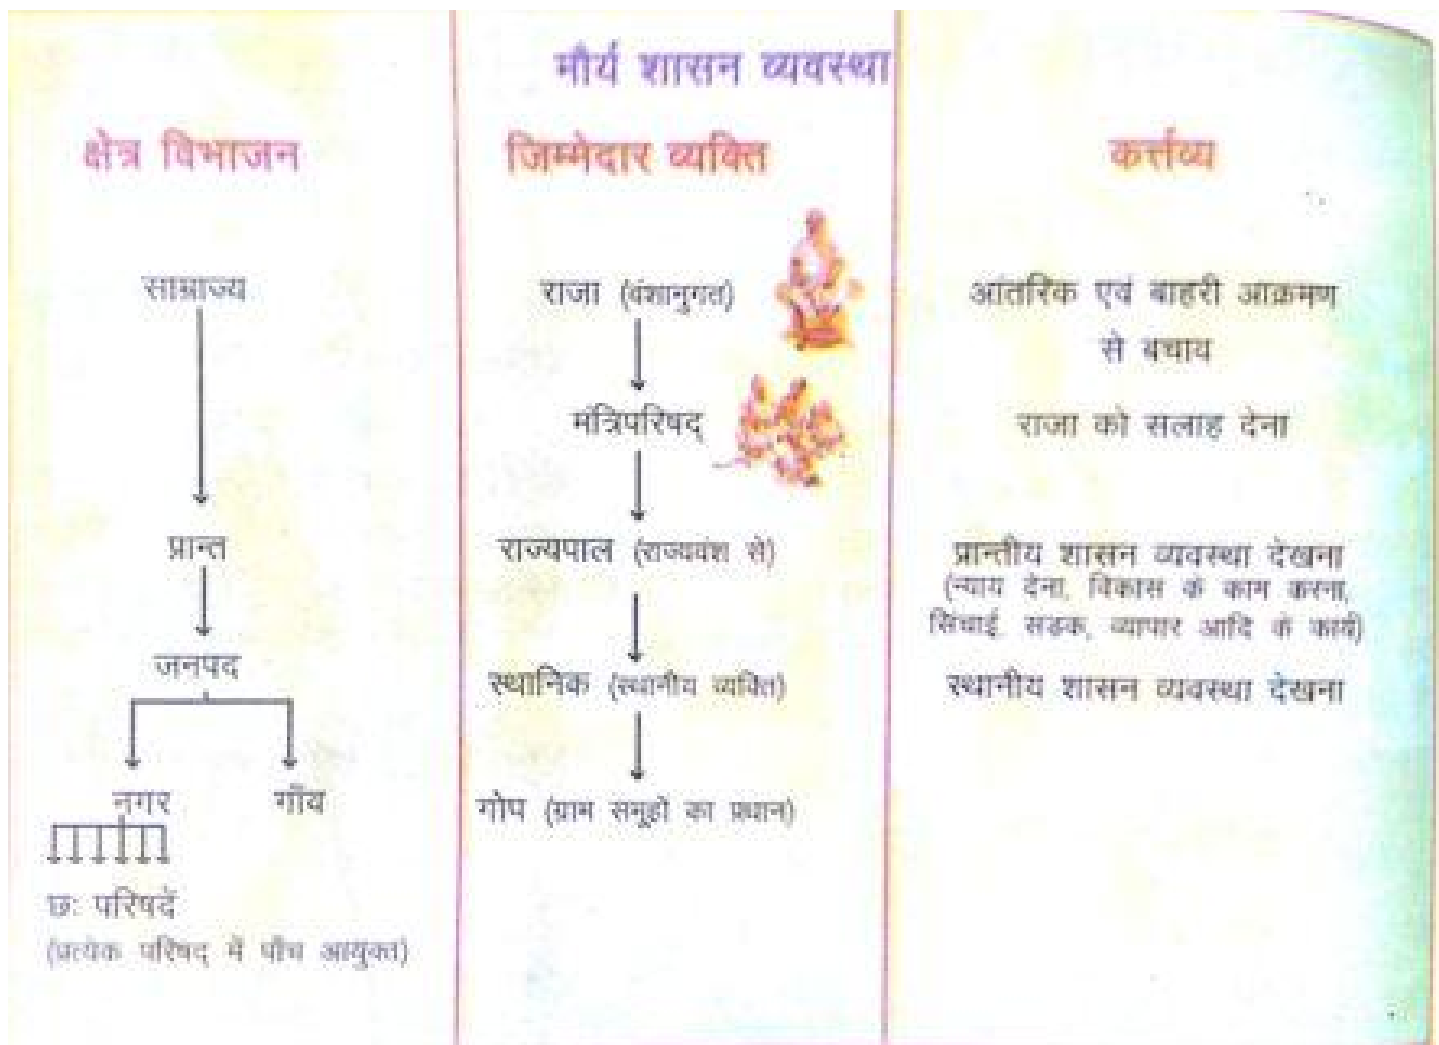 मौर्य शासन व्यवस्था
क्षेत्र विभाजन
साम्राज्य
प्रान्त
जनपद
नगर गाँव
छः परिषदें
(प्रत्येक परिषद् में पाँच आयुक्त)
जिम्मेदार व्यक्ति
राजा (वंशानुगत)
मंत्रिपरिषद्
राज्यपाल (राज्यवंश से)
स्थानिक (स्थानीय व्यक्ति)
गोप (ग्राम समूहों का प्रधान)
कर्त्तव्य
आंतरिक एवं बाहरी आक्रमण
से बचाव
राजा को सलाह देना
प्रान्तीय शासन व्यवस्था देखना
(न्याय देना, विकास के काम करना,
सिंचाई, सड़क, व्यापार आदि के कार्य)
स्थानीय शासन व्यवस्था देखना